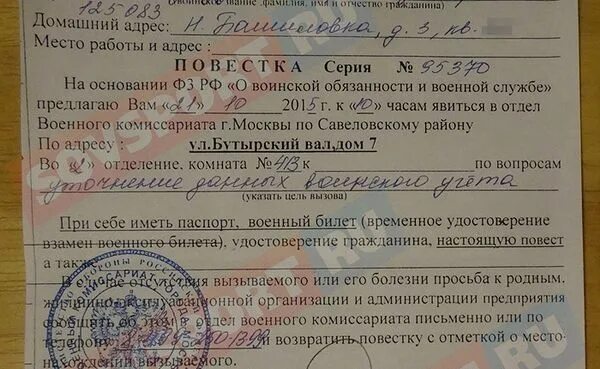 (воинское звание, фамилия, имя и отчество гражданина)
125083
Домашний адрес: Н. Башиловка, д. 3, кв.
Место работы и адрес :
ПОВЕСТКА Серия № 95370
На основании ФЗ РФ «О воинской обязанности и военной службе»
предлагаю Вам «21» 10 2015 г. к «10» часам явиться в отдел
Военного комиссариата г.Москвы по Савеловскому району
По адресу : ул.Бутырский вал,дом 7
Во «2» отделение, комната № 413 к по вопросам
уточнение данных воинского учёта
(указать цель вызова)
При себе иметь паспорт, военный билет (временное удостоверение
взамен военного билета), удостоверение гражданина, настоящую повест
а также
В случае отсутствия вызываемого или его болезни просьба к родным.
жилищно-эксплуатационной организации и администрации предприятия
сообщить об этом в отдел военного комиссариата письменно или по
телефону и возвратить повестку с отметкой о место-
нахождении вызываемого.
SOVSPORT.RU